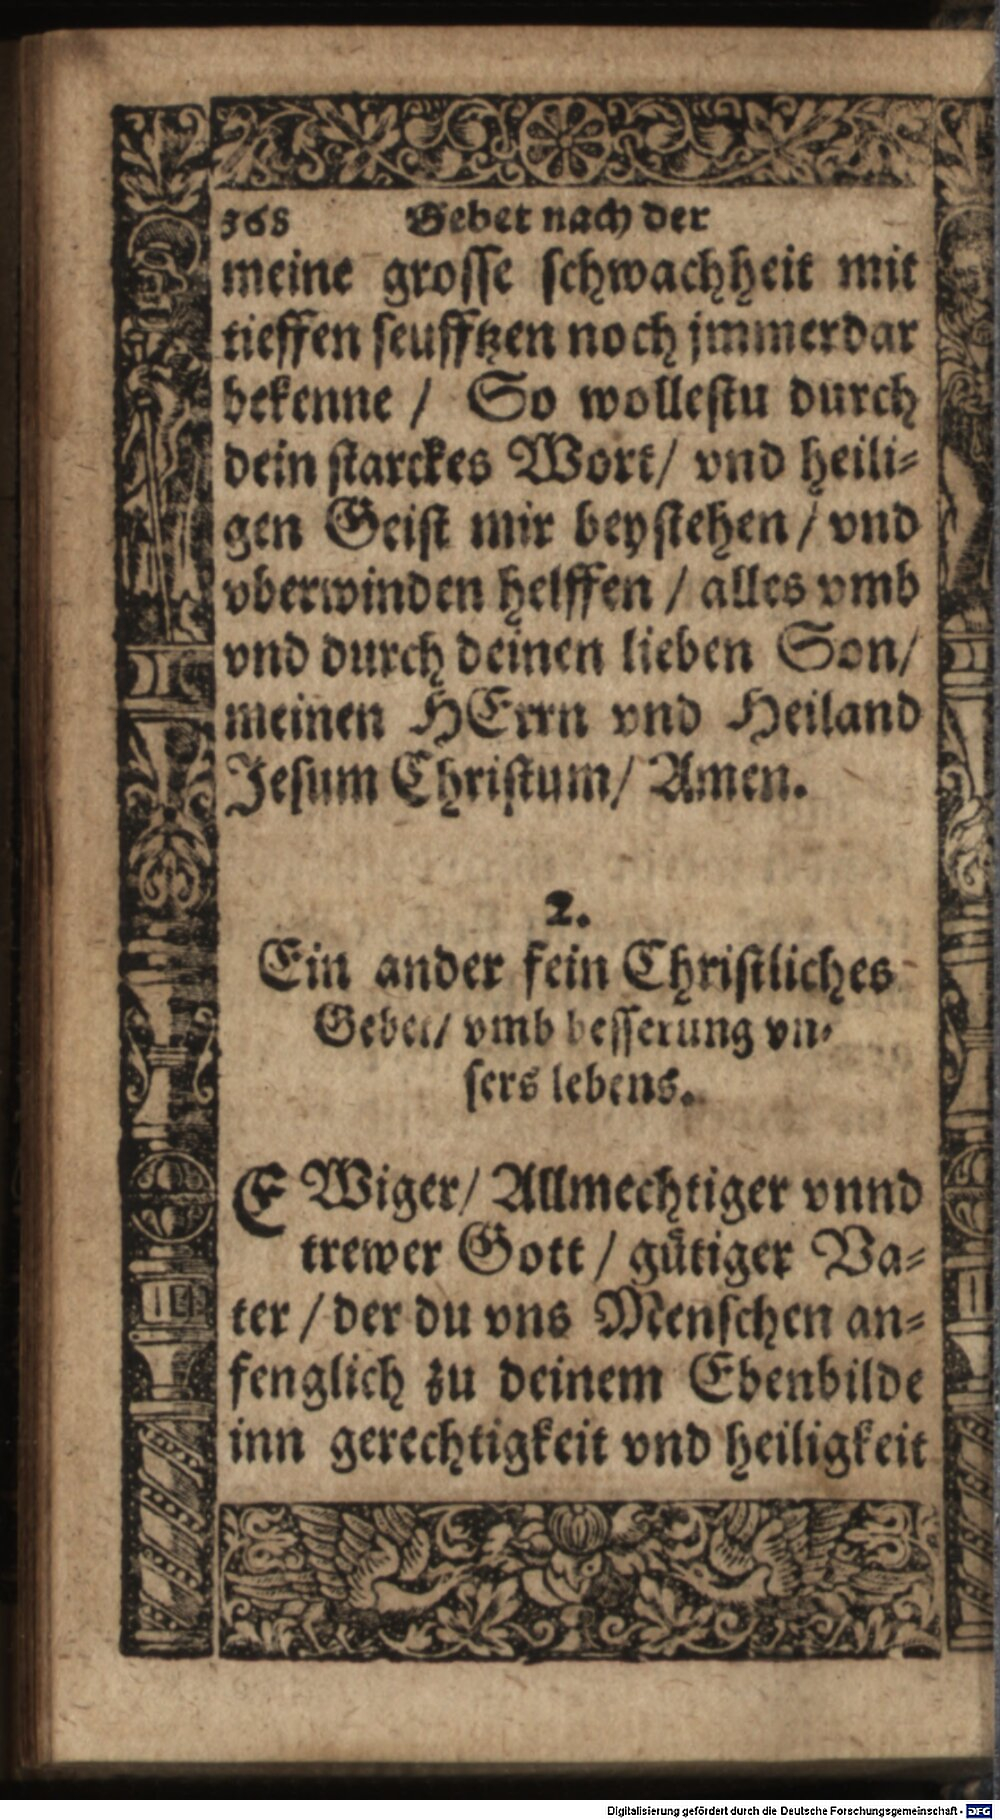 368 Gebet nach der
meine grosse schwachheit mit
tieffen seufftzen noch jmmerdar
bekenne / So wollestu durch
dein starckes Wort/ vnd heili-
gen Geist mir beystehen / vnd
vberwinden helffen / alles vmb
vnd durch deinen lieben Son/
meinen HErrn vnd Heiland
Jesum Christum/ Amen.
2.
Ein ander fein Christliches
Gebet/ vmb besserung vn-
sers lebens.
EWiger/ Allmechtiger vnnd
trewer Gott / gütiger Va-
ter / der du vns Menschen an-
fenglich zu deinem Ebenbilde
inn gerechtigkeit vnd heiligkeit
Digitalisierung gefördert durch die Deutsche Forschungsgemeinschaft - DFG